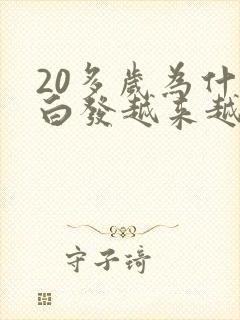 20多歲為什
白發越來越
守子琦